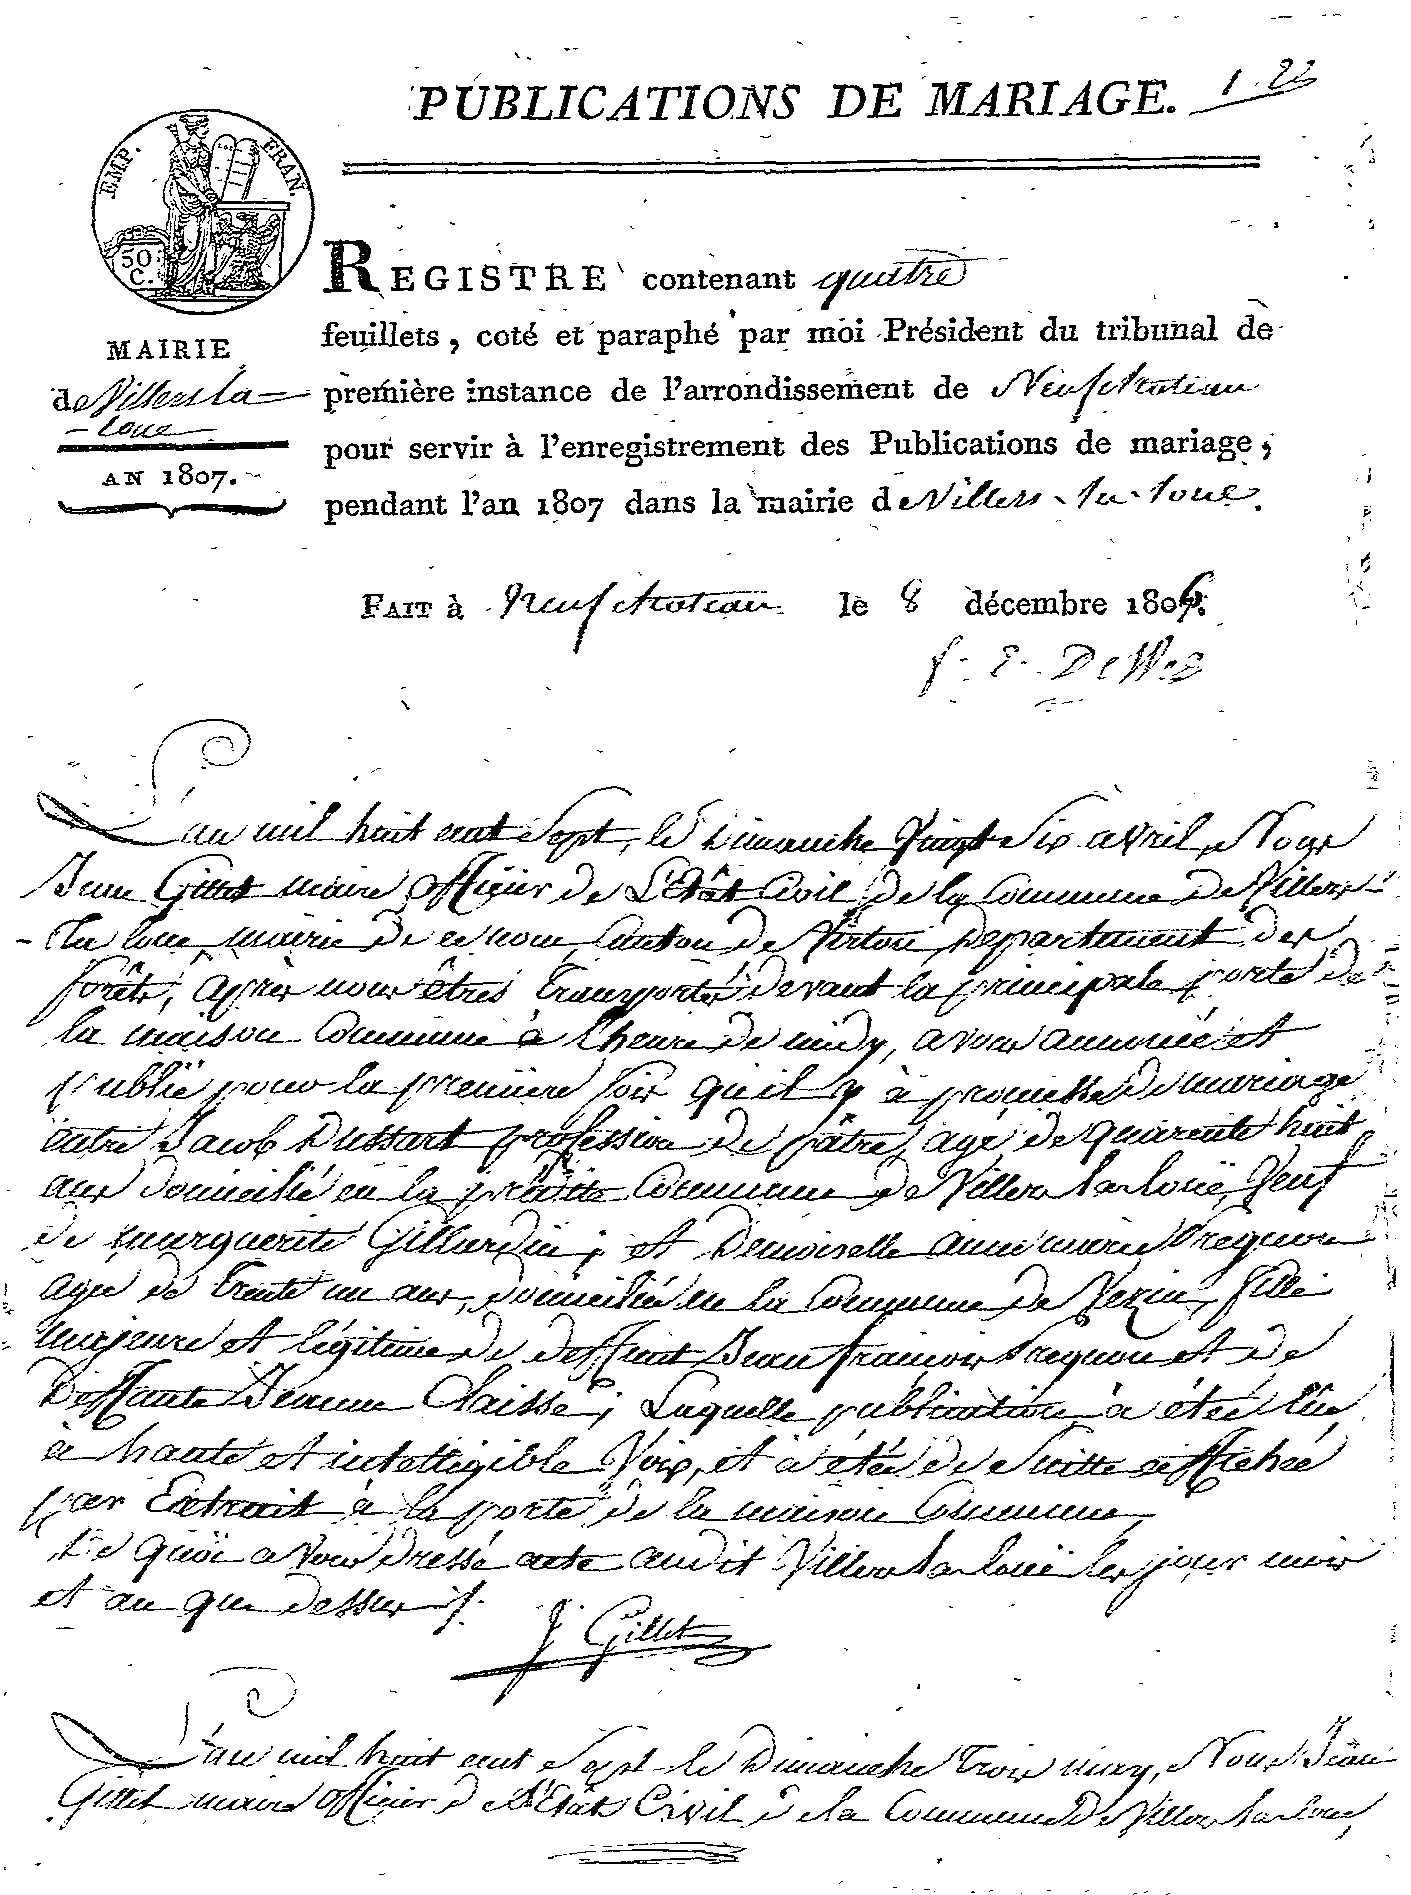 PUBLICATIONS DE MARIAGE.
EMP. FRAN.
50 C.
REGISTRE contenant quatre
feuillets, coté et paraphé par moi Président du tribunal de
première instance de l'arrondissement de Neufchateau
pour servir à l'enregistrement des Publications de mariage,
pendant l'an 1807 dans la mairie de Villers-la-loue.
MAIRIE
de Villers la
-loue
AN 1807.
FAIT à Neufchateau le 8 décembre 1806.
L'an mil huit cent Sept, le Dimanche Vingt Six avril, Nous
Jean Gillet maire officier de L'Etât Civil de la Commune de Villers-
-la loue, mairie de ce nom, Canton de Virton Departement des
forêts, après nous êtres transportés devant la principale porte de
la maison Commune à l'heure de midy, avons annoncé et
publié pour la première fois qu'il y à promesse de mariage
entre Jacob Dussart profession de pâtre, agé de quarente huit
ans domicilié en la préditte Commune de Villers La loüe, Veuf
de marguerite Gillardin; et Demoiselle anne marie Pregnon
agée de trente un ans, domiciliée en la Commune de Vezin, fille
majeure et légitime de deffunt Jean françois Pregnon et de
Deffunte Jeanne Claisse; Laquelle publication à étée lüe
à haute et intelligible Voix, et à étée de Suitte affichée
par Extrait à la porte de la maison Commune,
De quoi avons dressé acte audit Villers La loüe les jour mois
et an que dessus
J Gillet
L'an mil huit cent Sept le Dimanche trois may, Nous Jean
Gillet maire officier de L'Etât Civil de la Commune de Villers La loue,